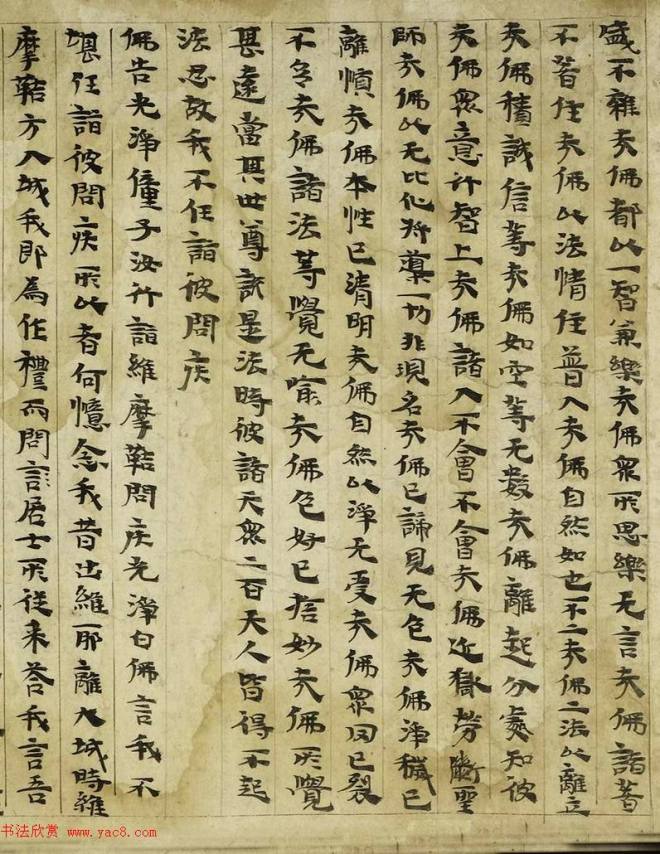 盛不雜夫佛都以一智兼樂夫佛衆所思樂无言夫佛諸著
不著住夫佛以法情住普入夫佛自然如也不二夫佛二法以離立
夫佛積誠信等夫佛如空等无數夫佛離起分處知彼
夫佛衆意行智上夫佛諸入不會不會夫佛近獄勞斷聖
師夫佛以无比化將導一切非現名夫佛已諦見无色夫佛淨穢已
離順夫佛本性已清明夫佛自然以淨无受夫佛衆罔已裂
不多夫佛諸法等覺无喻夫佛色好已捨妙夫佛所覺
甚遠當其世尊說是法時彼諸天衆二百天人皆得不起
法忍故我不任詣彼問疾
佛告光淨僮子汝行詣維摩詰問疾光淨白佛言我不
堪任詣彼問疾所以者何憶念我昔出維耶離大城時維
摩詰方入城我即為作禮而問言居士所從来荅我言吾
书法欣赏 www.yac8.com